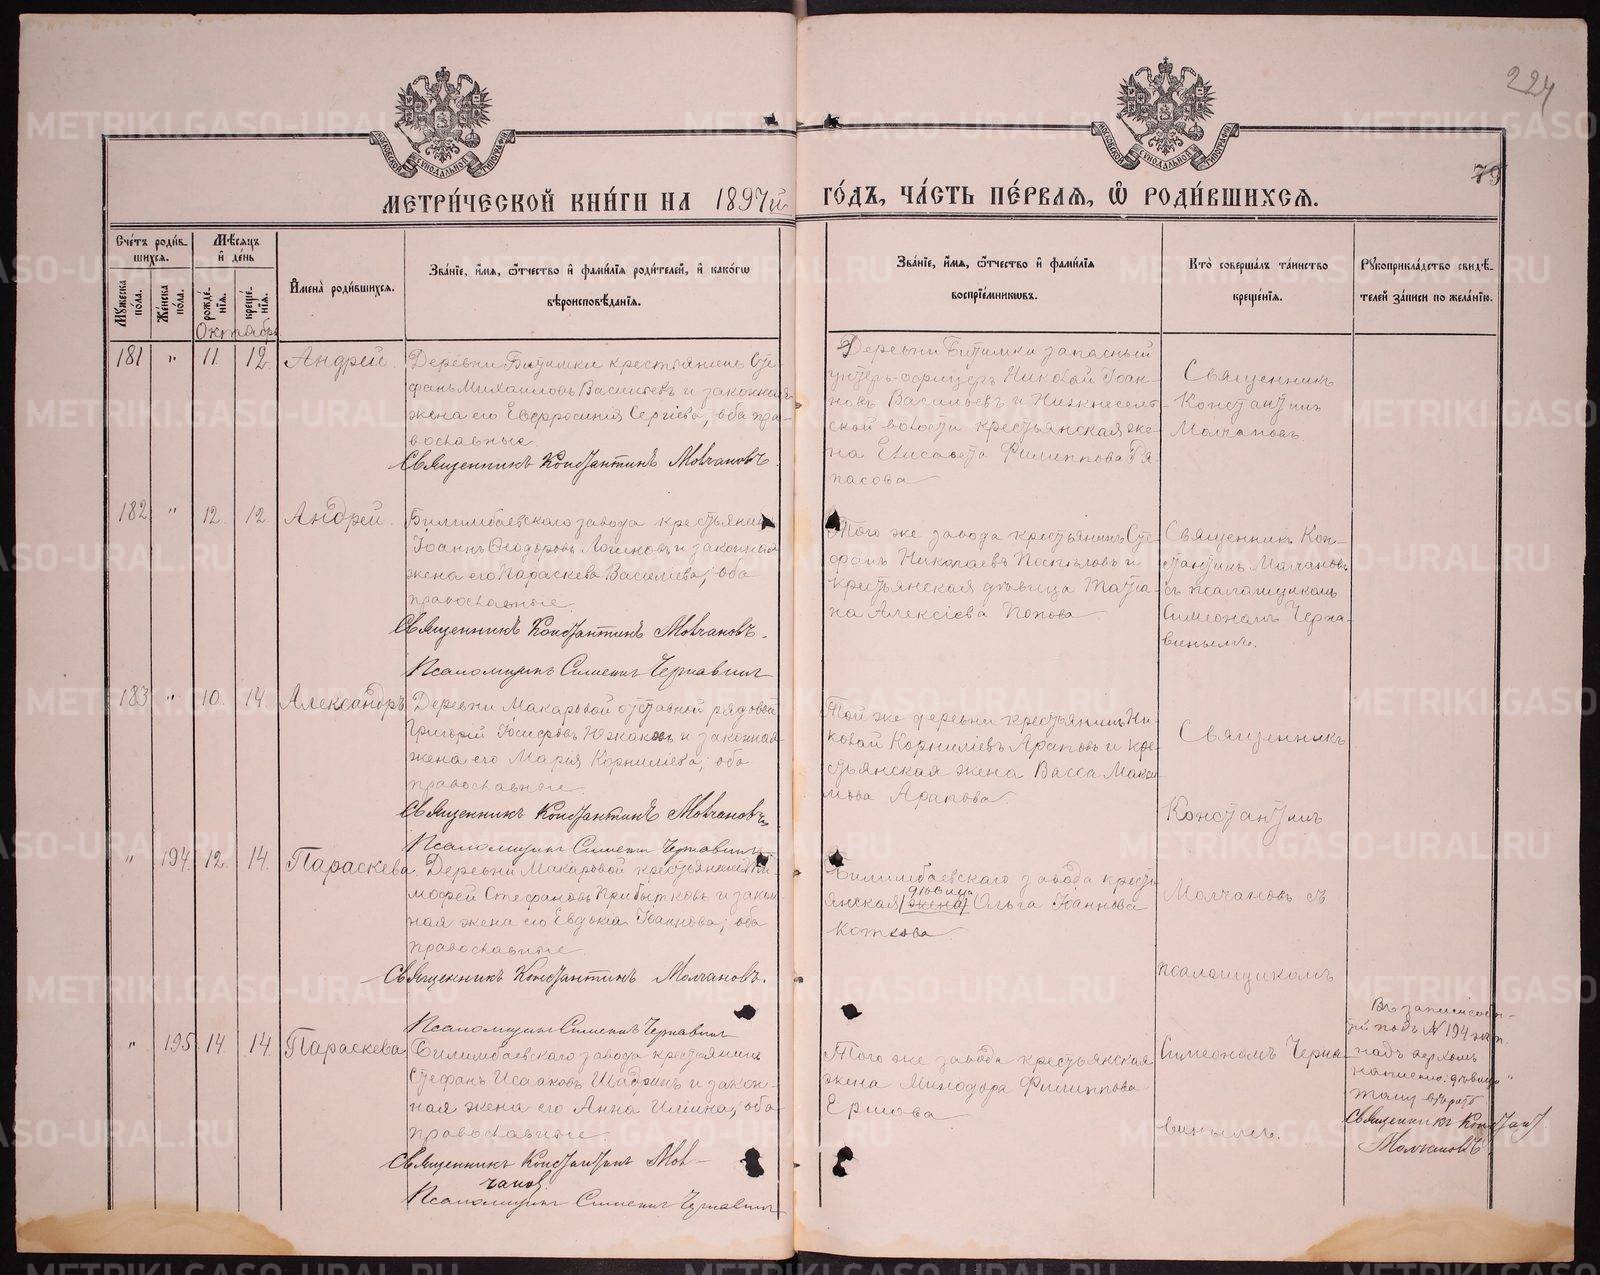 224
79
МОСКОВСКОЙ СИНОДАЛЬНОЙ ТИПОГРАФІИ
МОСКОВСКОЙ СИНОДАЛЬНОЙ ТИПОГРАФІИ
МЕТРИ́ЧЕСКОЙ КНИ́ГИ НА 1897й ГО́ДЪ, ЧА́СТЬ ПЕ́РВАЯ, Ѡ РОДИ́ВШИХСЯ.
Сче́тъ роди́в-
шихся.
Мꙋжеска пола.
Же́нска пола.
Мѣсяцъ
и҆ де́нь
рожде-
нїя.
креще-
нїя.
Октябрь
И҆мена̀ роди́вшихся.
Зва́нїе, и҆́мя, ѻ҆́тчество и҆ фами́лїя роди́телей, и҆ како́гѡ
вѣроисповѣ́данїя.
Зва́нїе, и҆́мя, ѻ҆́тчество и҆ фами́лїя
воспрїе́мникѡвъ.
Кто̀ соверша́лъ та́инство
креще́нїя.
Рꙋкоприкла́дство свидѣ́-
телей за́писи по жела́нїю.
181 " 11. 12. Андрей.
Деревни Битимки крестьянинъ Сте-
фанъ Михаиловъ Васильевъ и законная
жена его Евфросинія Сергіева, оба пра-
вославные
Священникъ Константинъ Молчановъ.
Деревни Битимки запасный
унтеръ-офицеръ Николай Іоан-
новъ Васильевъ и Нижнесель-
ской волости крестьянская же-
на Елисавета Филиппова
Священникъ
Константинъ
Молчановъ.
182 " 12. 12. Андрей.
Билимбаевскаго завода крестьянинъ
Іоаннъ Ѳеодоровъ Логиновъ и законная
жена его Параскева Василіева, оба
православные.
Священникъ Константинъ Молчановъ.
Псаломщикъ Симеонъ Чернавинъ
Того же завода крестьянинъ Сте-
фанъ Николаевъ Поспѣловъ и
крестьянская дѣвица Татіа-
на Алексіева Попова
Священникъ Кон-
стантинъ Молчановъ
съ псаломщикомъ
Симеономъ Черна-
винымъ.
183 " 10. 14. Александръ
Деревни Макаровой отставной рядовой
Григорій Іосифовъ Южаковъ и законная
жена его Марія Корниліева, оба
православные.
Священникъ Константинъ Молчановъ
Псаломщикъ Симеонъ Чернавинъ
Той же деревни крестьянинъ Ни-
колай Корниліевъ Араповъ и кре-
стьянская жена Васса Макси-
мова Арапова
Священникъ
Константинъ
" 194. 12. 14. Параскева.
Деревни Макаровой крестьянинъ Ти-
мофей Стефановъ Прибытковъ и закон-
ная жена его Евдокія Іоаннова, оба
православные
Священникъ Константинъ Молчановъ.
Псаломщикъ Симеонъ Чернавинъ
Билимбаевскаго завода кресть-
дѣвица
янская (жена) Ольга Іоаннова
Молчановъ съ
псаломщикомъ
" 195 14. 14. Параскева
Билимбаевскаго завода крестьянинъ
Стефанъ Исааковъ Шадринъ и закон-
ная жена его Анна Иліина, оба
православные.
Священникъ Константинъ Мол-
чановъ
Псаломщикъ Симеонъ Чернавинъ
Того же завода крестьянская
жена Минодора Филиппова
Ершова
Симеономъ Черна-
винымъ.
Въ записи
подъ № 194
надъ
написано: "дѣвица"
Священникъ Константинъ
Молчановъ
METRIKI.GASO-URAL.RU